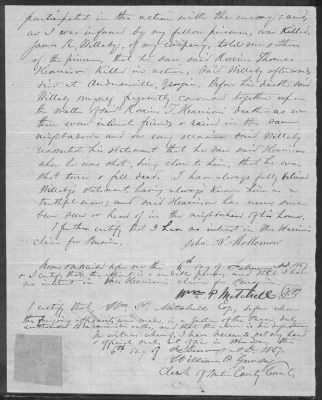 participated in this action with the enemy, and,
as I was informed by my fellow prisoners, was killed,
James R. Willeby, of my company, told me & others
of the prisoners, that he saw said
Harrison killed in action, Said Willeby afterwards
died at Andersonville, Georgia. Before his death said
Willeby & myself frequently conversed together upon
the matter of said Harrison's death as we
three were intimate friends, & raised in the same
neighborhood and on every occasion said Willeby
reasserted his statement that he saw said Harrison
when he was shot, being close to him, that he was
shot down & fell dead. I have always fully believed
Willeby's statement having always known him as a
truthful man, and said Harrison has never since
been seen or heard of in the neighborhood of his home.
I further certify that I have no interest in Mrs Harrison's
claim for Pension.
John W.
Sworn to & subscribed before me this 6th day of February A.D. 1867
& I certify that the affiant is a credible person, and that I have
no interest in Mrs Harrison's claim
Wm P. Mitchell
I certify that Wm P. Mitchell Esq, before whom
the foregoing affidavits were made, is a Justice of the Peace duly
and that the above is his signature
In witness whereof I have hereunto set my hand
& official seal, at office in
6th day of February A.D. 1867.
William
Clerk of County Court